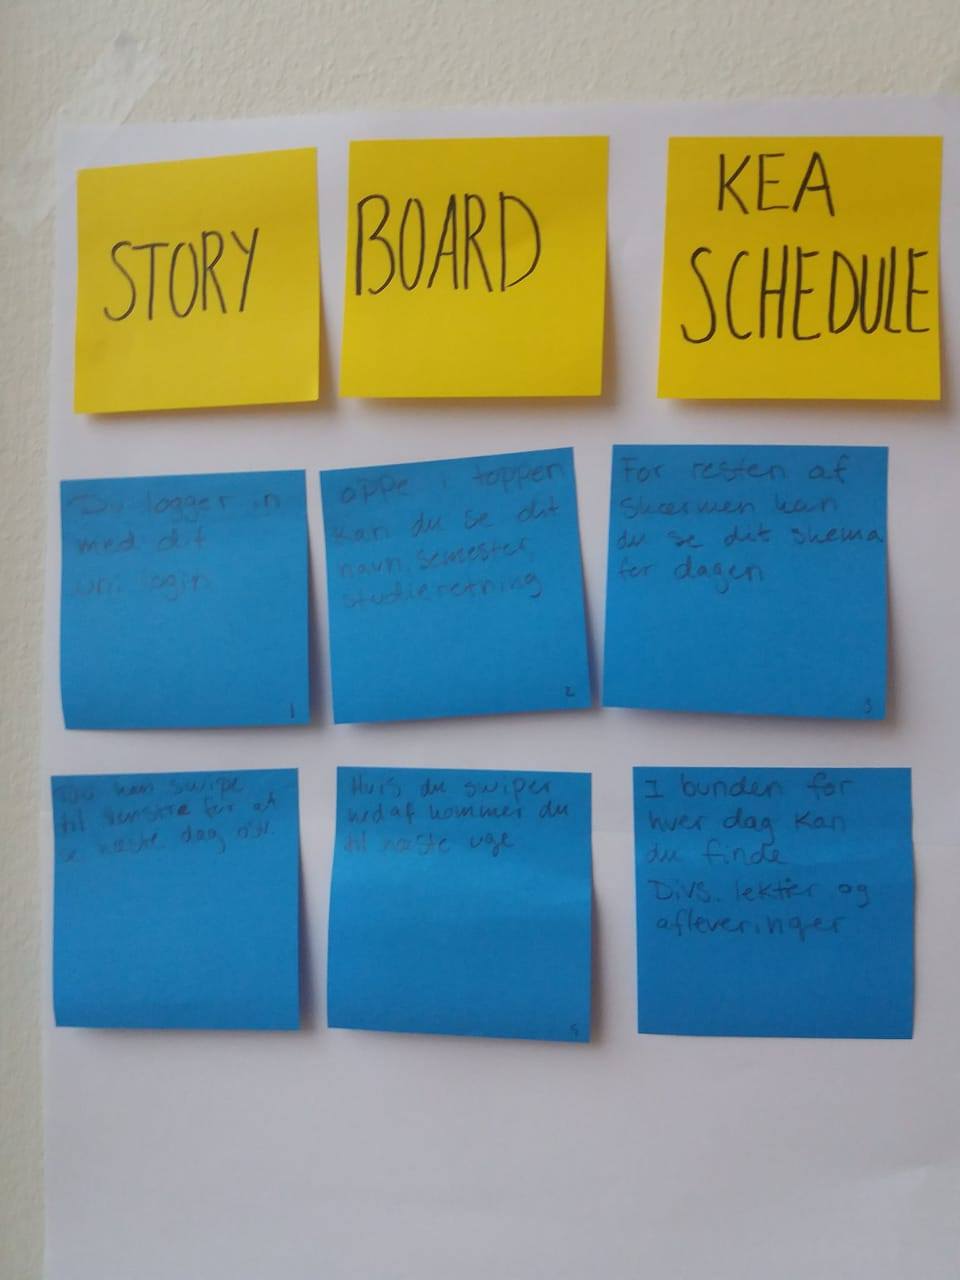 STORY
BOARD
KEA
SCHEDULE
Du logger in
med dit
uni login
1
oppe i toppen
kan du se dit
navn, semester,
studieretning
2
For resten af
skærmen kan
du se dit skema
for dagen
3
Du kan swipe
til venstre for at
se næste dag osv.
Hvis du swiper
nedaf kommer du
til næste uge
5
I bunden for
hver dag kan
du finde
Divs. lektier og
afleveringer